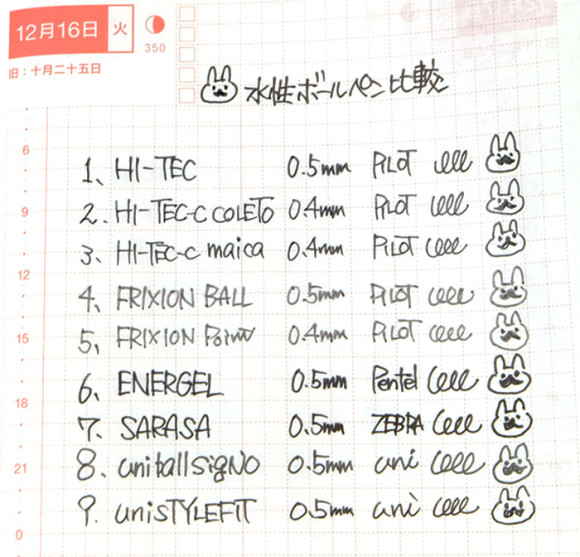 12月16日 火
350
旧：十月二十五日
水性ボールペン比較
6
1、HI-TEC 0.5mm PILOT
9
2. HI-TEC-C COLETO 0.4mm PILOT
3、HI-TEC-C maica 0.4mm PILOT
12
4、FRIXION BALL 0.5mm PILOT
15
5、FRIXION Point 0.4mm PILOT
6、ENERGEL 0.5mm Pentel
18
7、SARASA 0.5mm ZEBRA
21
8. uniballSigNO 0.5mm uni
9. uniSTYLEFIT 0.5mm uni
0